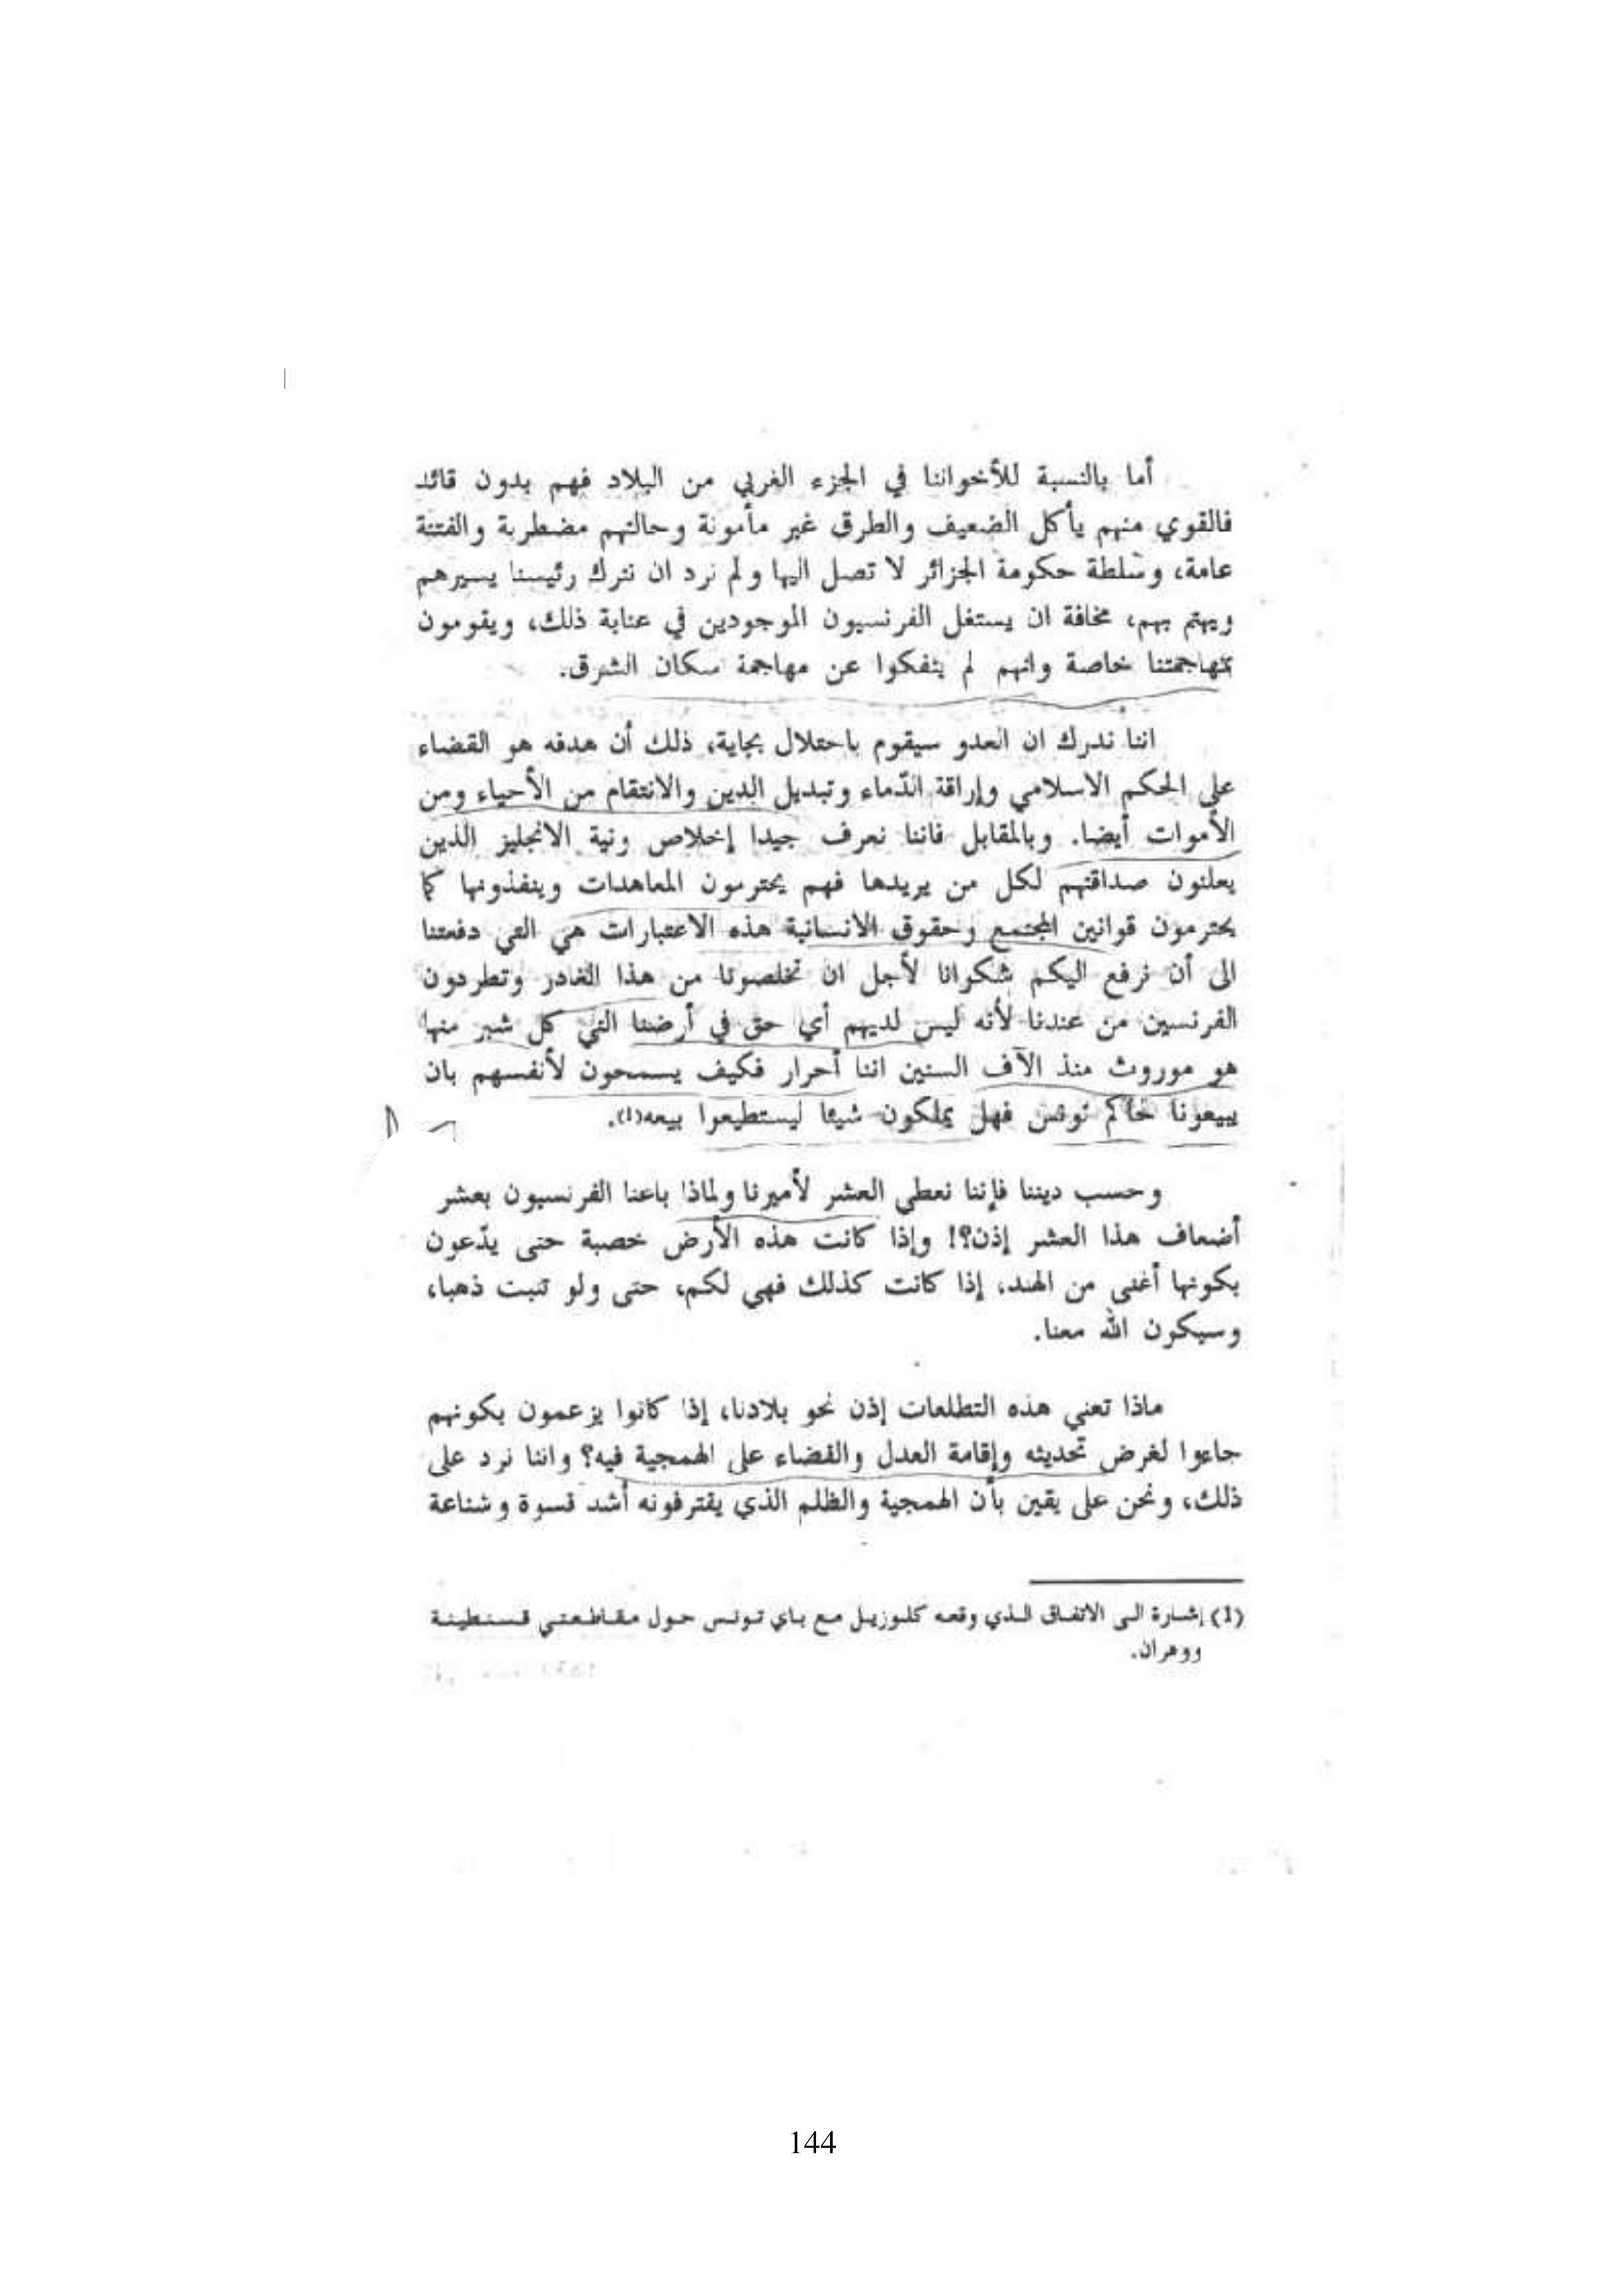 أما بالنسبة للأخواننا في الجزء الغربي من البلاد فهم بدون قائد
فالقوي منهم يأكل الضعيف والطرق غير مأمونة وحالتهم مضطربة والفتنة
عامة، وسلطة حكومة الجزائر لا تصل اليها ولم نرد ان نترك رئيسنا يسيرهم
ويهتم بهم، مخافة ان يستغل الفرنسيون الموجودين في عنابة ذلك، ويقومون
بمهاجمتنا خاصة وانهم لم ينفكوا عن مهاجمة سكان الشرق.
اننا ندرك ان العدو سيقوم باحتلال بجاية، ذلك أن هدفه هو القضاء
على الحكم الاسلامي وإراقة الدّماء وتبديل الدين والانتقام من الأحياء ومن
الأموات أيضا. وبالمقابل فاننا نعرف جيدا إخلاص ونية الانجليز الذين
يعلنون صداقتهم لكل من يريدها فهم يحترمون المعاهدات وينفذونها كما
يحترمون قوانين المجتمع وحقوق الانسانية هذه الاعتبارات هي التي دفعتنا
الى أن نرفع اليكم شكوانا لأجل ان تخلصونا من هذا الغادر وتطردون
الفرنسين من عندنا لأنه ليس لديهم أي حق في أرضنا التي كل شبر منها
هو موروث منذ الآف السنين اننا أحرار فكيف يسمحون لأنفسهم بان
يبيعونا حاكم تونس فهل يملكون شيئا ليستطيعوا بيعه(1).
وحسب ديننا فإننا نعطي العشر لأميرنا ولماذا باعنا الفرنسيون بعشر
أضعاف هذا العشر إذن؟! وإذا كانت هذه الأرض خصبة حتى يدّعون
بكونها أغنى من الهند، إذا كانت كذلك فهي لكم، حتى ولو تنبت ذهبا،
وسيكون الله معنا.
ماذا تعني هذه التطلعات إذن نحو بلادنا، إذا كانوا يزعمون بكونهم
جاءوا لغرض تحديثه وإقامة العدل والقضاء على الهمجية فيه؟ واننا نرد على
ذلك، ونحن على يقين بأن الهمجية والظلم الذي يقترفونه أشد قسوة وشناعة
(1) إشارة الى الاتفاق الذي وقعه كلوزيل مع باي تونس حول مقاطعتي قسنطينة
ووهران.
144